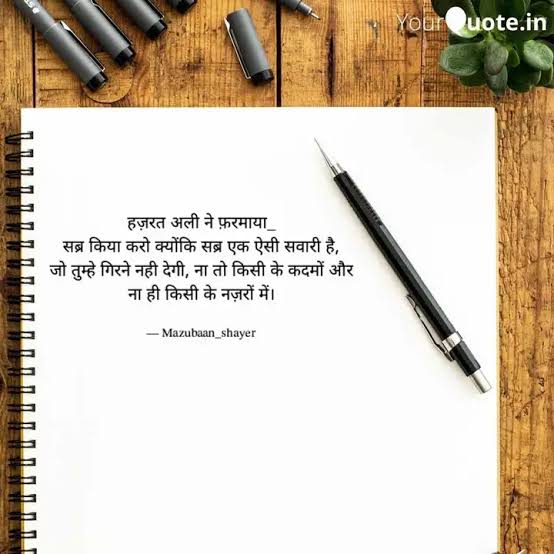 YourQuote.in
हज़रत अली ने फ़रमाया_
सब्र किया करो क्योंकि सब्र एक ऐसी सवारी है,
जो तुम्हे गिरने नही देगी, ना तो किसी के कदमों और
ना ही किसी के नज़रों में।
— Mazubaan_shayer